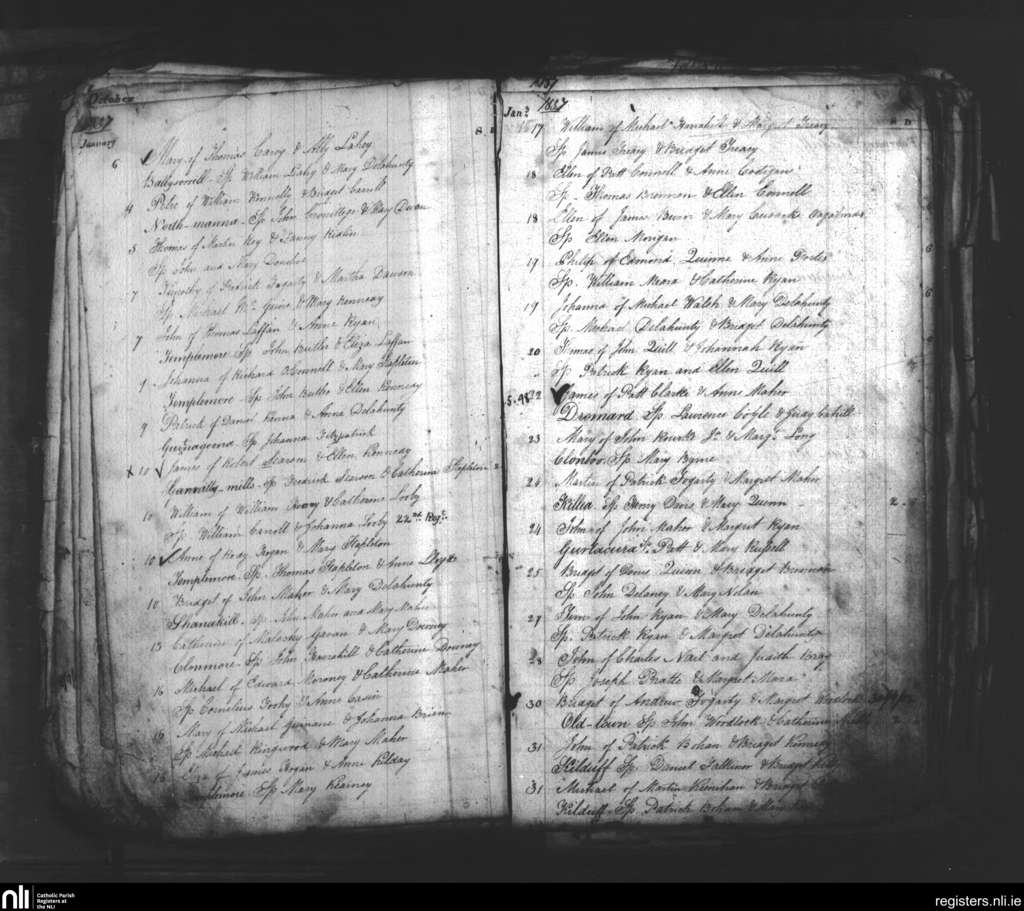 October
1837
January
S D
6 Mary of Thomas Carey & Ally Lahey
Ballysorrell Sp William Lahy & Mary Delahunty
4 Peter of William Kennelly & Bridget Carroll
North-manna Sp John & Mary Dwan
5 Thomas of Martin Key & Fanny
Sp John and Mary Daniel
7 Timothy of Fedrick Fogarty & Martha Dawson
Sp Michael Mc Guire & Mary Kennedy
7 John of Thomas Laffan & Anne Ryan
Templemore Sp John Butler & Eliza Laffan
9 Johanna of Richard OConnell & Mary Stapleton
Templemore Sp John Butler & Ellen Kennedy
9 Patrick of Daniel Kenna & Anna Delahunty
Sp Johanna Fitzpatrick
x 10 James of Robert Searson & Ellen Kennedy
mills Sp Fredrick Searson & Catherine Stapleton
10 William of William & Catherine Looby
Sp William Carroll & Johanna Looby 22nd
10 Anne of Rody Bryan & Mary Stapleton
Templemore Sp Thomas Stapleton & Anne Lloyd
10 Bridget of John Maher & Mary Delahunty
Shanakill Sp John Maher and Mary Maher
13 Catherine of Malachy Gavan & Mary Downey
Clonmore Sp John & Catherine Downey
16 Michael of Edward Moroney & Catherine Maher
Sp Cornelius & Anne Casin
16 Mary of Michael Guinane & Johanna Brien
Sp Michael Kingwood & Mary Maher
16 Eliza of James Bryan & Anne Kilday
Templemore Sp Mary Kearney
1837
Jany 1837
S D
17 William of Michael & Margret Treacy
Sp James Treacy & Bridget Treacy
18 Ellen of Patt Connell & Anne Costigan
Sp Thomas Brennan & Ellen Connell
18 Ellen of James Burn & Mary
Sp Ellen Morgan
19 Philip of Edmond Quinne & Anne
Sp William Meara & Catherine Ryan
19 Johanna of Michael Walsh & Mary Delahunty
Sp Michael Delahunty & Bridget Delahunty
20 Thomas of John Quill & Johannah Ryan
Sp Patrick Ryan and Ellen Quill
22 James of Patt Clarke & Anne Maher
Dromard Sp Lawrence Coyle & Cahill
23 Mary of John Rourke Jr & Margt Long
Sp Mary Byrne
24 Martin of Patrick Fogarty & Margret Maher
Killea Sp Henry Davis & Mary Quinn
24 John of John Maher & Margret Ryan
Patt & Mary Russell
25 Bridget of Denis Quinn & Bridget Brennan
Sp John Delaney & Mary Nolan
27 of John Ryan & Mary Delahunty
Sp Patrick Ryan & Margret Delahunty
28 John of Charles Nail and Judith Bray
Sp Joseph Pratte & Margret Mara
30 Bridget of Andrew Fogarty & Margret Wordlock
Old-town Sp John Wordlock & Catherine
31 John of Patrick Bohan & Bridget Kennedy
Kilduff Sp Daniel Sullivan & Bridget
31 Michael of Martin & Bridget
Kilduff Sp Patrick Bohan & Mary
nli Catholic Parish
Registers at
the NLI
registers.nli.ie